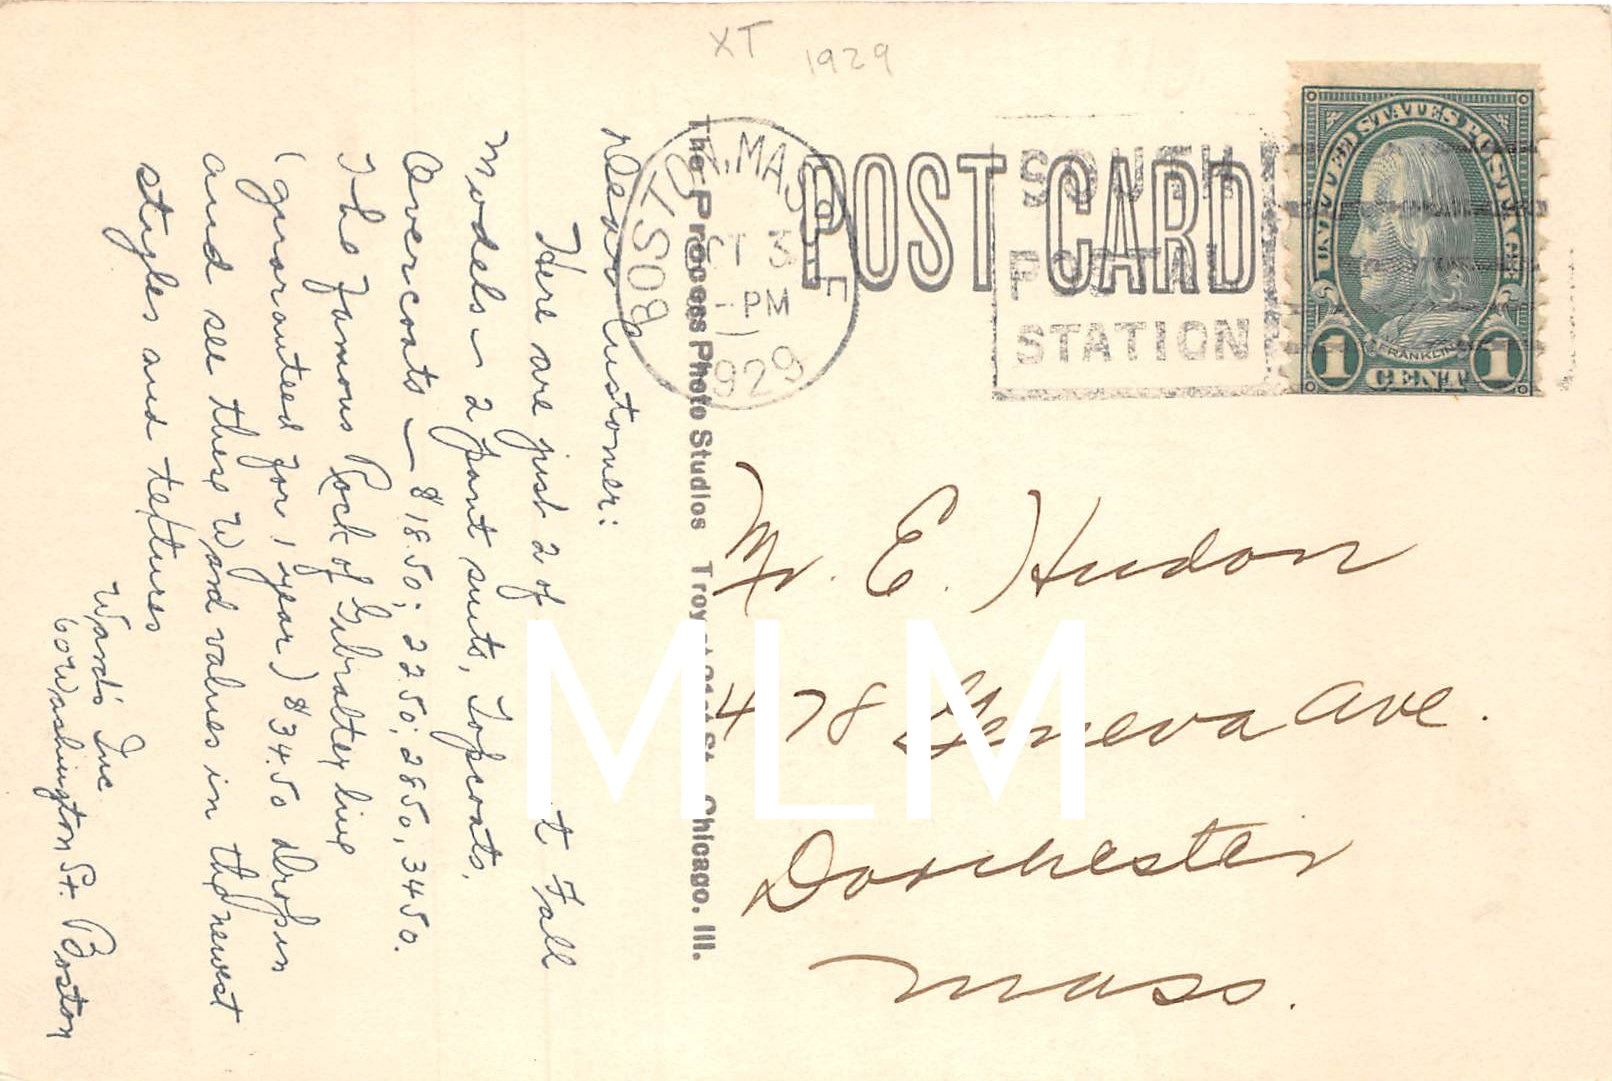 XT 1929
BOSTON, MASS.
3
PM
1929
SOUTH
POSTAL
STATION
POST CARD
UNITED STATES POSTAGE
FRANKLIN
1 CENT 1
Dear Customer:
Here are just 2 of t Fall
Models - 2 pant suits, Topcoats,
Overcoats - $18.50; 22.50; 28.50, 34.50.
The Famous Rock of Gibralter line
(guaranteed for 1 year) $34.50 drop in
and see these Ward values in the newest
styles and textures
Ward's Inc
60 Washington St. Boston
The Process Photo Studios Troy St. Chicago, Ill.
Mr. E. Hudon
478 Geneva Ave.
Dorchester
Mass.
MLM